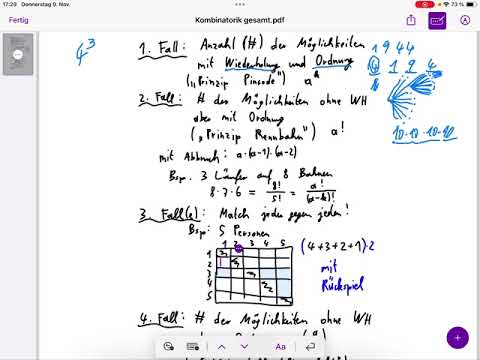 17:29 Donnerstag 9. Nov.
73 %
Fertig
Kombinatorik gesamt.pdf
4³
1. Fall: Anzahl (#) der Möglichkeiten
mit Wiederholung und Ordnung
("Prinzip Pincode")
1 9 4 4
4 1 9 4
10·10·10·10
2. Fall: # der Möglichkeiten ohne WH
aber mit Ordnung
("Prinzip Rennbahn") a!
mit Abbruch: a·(a-1)·(a-2)
Bsp. 3 Läufer auf 8 Bahnen
8·7·6 = 8!/5! = a!/(a-k)!
3. Fall(e): Match jeder gegen jeden!
Bsp: 5 Personen
1 2 3 4 5
1
2
3
4
5
(4+3+2+1)·2
mit
Rückspiel
4. Fall: # der Möglichkeiten ohne WH
Aa